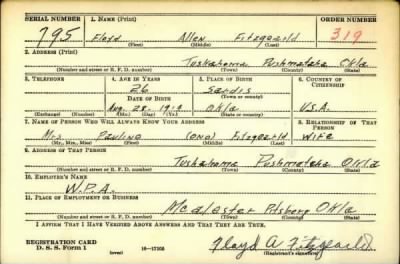 SERIAL NUMBER 1. NAME (Print) ORDER NUMBER
795 Floyd Allen Fitzgearld 319
(First) (Middle) (Last)
2. ADDRESS (Print)
Tuskahoma Pushmataha Okla
(Number and street or R. F. D. number) (Town) (County) (State)
3. TELEPHONE 4. AGE IN YEARS 5. PLACE OF BIRTH 6. COUNTRY OF CITIZENSHIP
26 Sardis
DATE OF BIRTH (Town or county)
Aug. 28- Okla U.S.A.
(Exchange) (Number) (Mo.) (Day) (Yr.) (State or country)
7. NAME OF PERSON WHO WILL ALWAYS KNOW YOUR ADDRESS 8. RELATIONSHIP OF THAT PERSON
Mrs Pauline Fitzgearld Wife
(Mr., Mrs., Miss) (First) (Middle) (Last)
9. ADDRESS OF THAT PERSON
Tuskahoma Pushmataha Okla
(Number and street or R. F. D. number) (Town) (County) (State)
10. EMPLOYER'S NAME
W.P.A.
11. PLACE OF EMPLOYMENT OR BUSINESS
Mcalester Pitsberg Okla
(Number and street or R. F. D. number) (Town) (County) (State)
I AFFIRM THAT I HAVE VERIFIED ABOVE ANSWERS AND THAT THEY ARE TRUE.
REGISTRATION CARD
D. S. S. Form 1 (over) 16—17105 Floyd A Fitzgearld
(Registrant's signature)